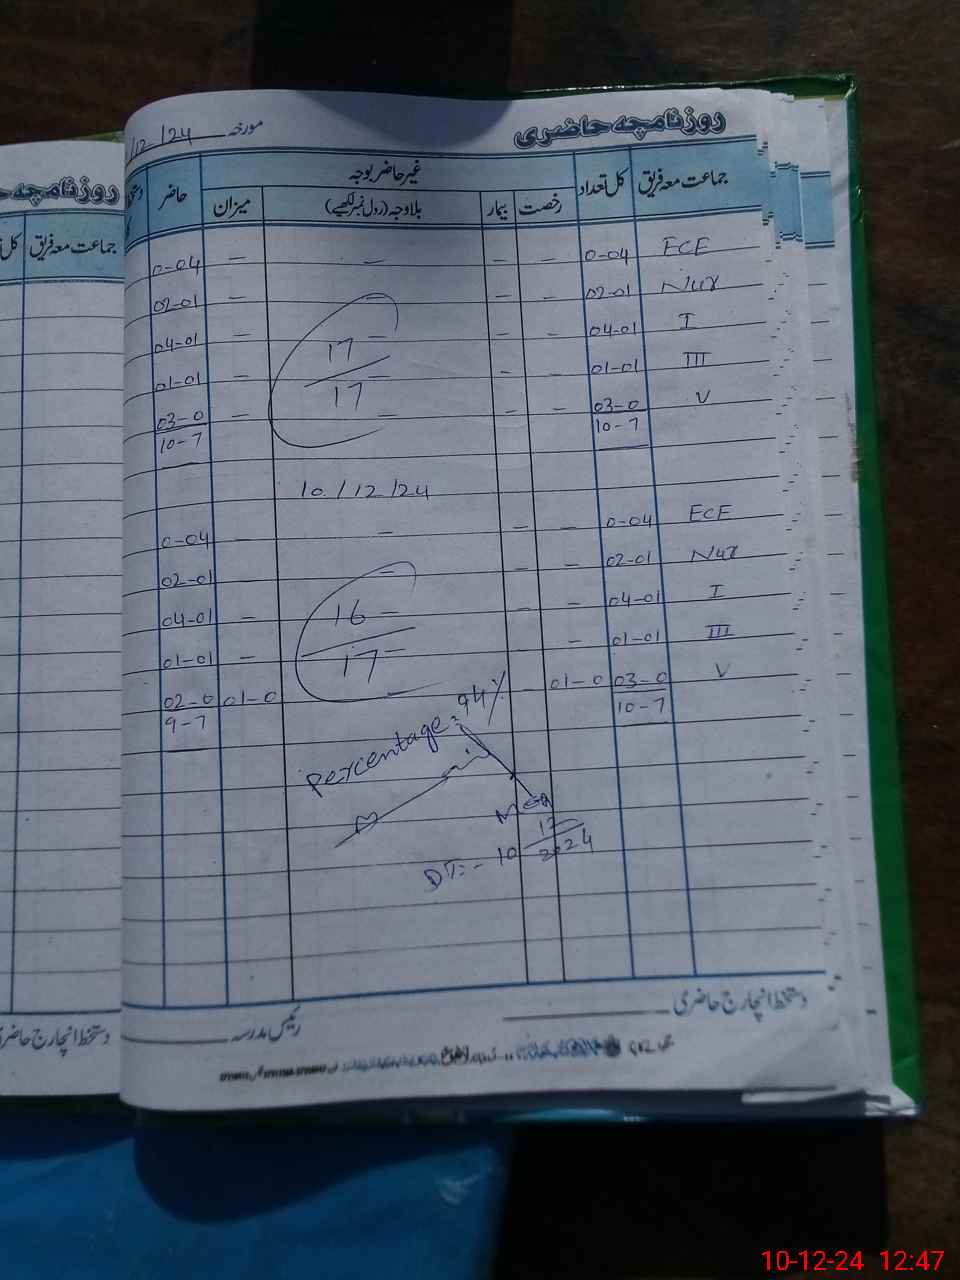 روزنامچہ حاضری
مورخہ /12/24
جماعت معہ فریق کل تعداد غیر حاضر بوجہ حاضر
رخصت بیمار بلاوجہ (رول نمبر لکھیے) میزان
ECE 0-04 - - - - 0-04
Nur 02-01 - - - - 02-01
I 04-01 - - - - 04-01
III 01-01 - - - - 01-01
V 03-0 - - - - 03-0
10-7 10-7
17
17
10/12/24
ECE 0-04 - - - - 0-04
Nur 02-01 - - - 02-01
I 04-01 - - - - 04-01
III 01-01 - - - 01-01
V 03-0 01-0 - - 01-0 02-0
10-7 9-7
16
17
Percentage = 94%
DT:- 10 12 2024
دستخط انچارج حاضری
رئیس مدرسہ
روزنامچہ
جماعت معہ فریق
دستخط انچارج حاضری
10-12-24 12:47